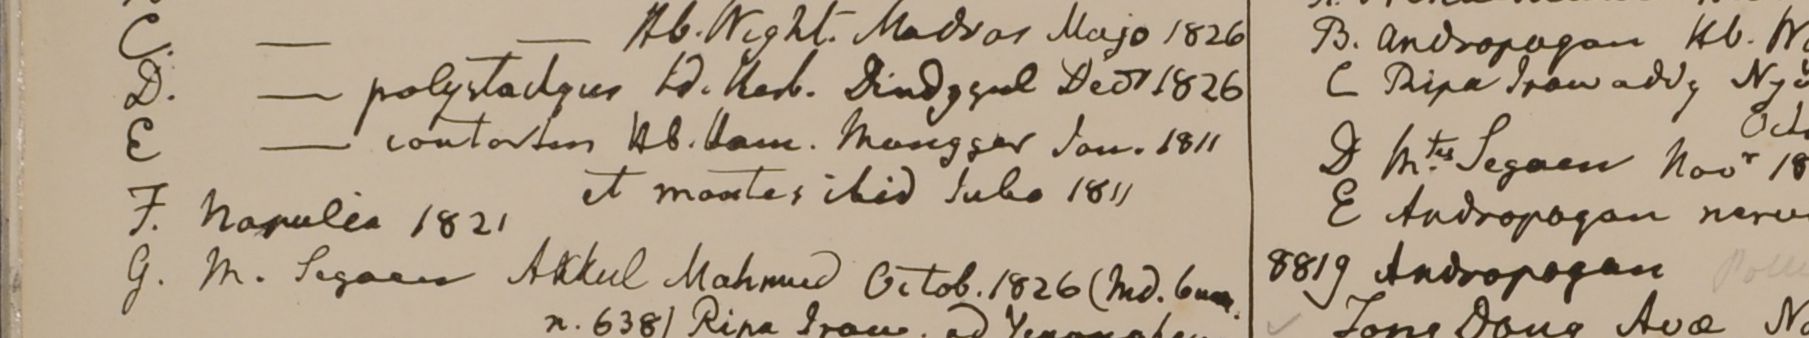 C. — — Hb. Wight. Madras Majo 1826
D. — polystachyus Id. Herb. Dindygul Dec 1826
E — contortus Hb. Ham. Mungger Jan. 1811
et montes ibid 1811
F. Napulia 1821
G. M. Segaen Akkul Mahmud Octob. 1826 (Md.
n. 638) Ripa Iraw. ad
B. Andropogon Hb.
C Ripa Irawaddy
D M.tes Segaen Novr 18
E Andropogon
8819 Andropogon
Tong Dong Avae